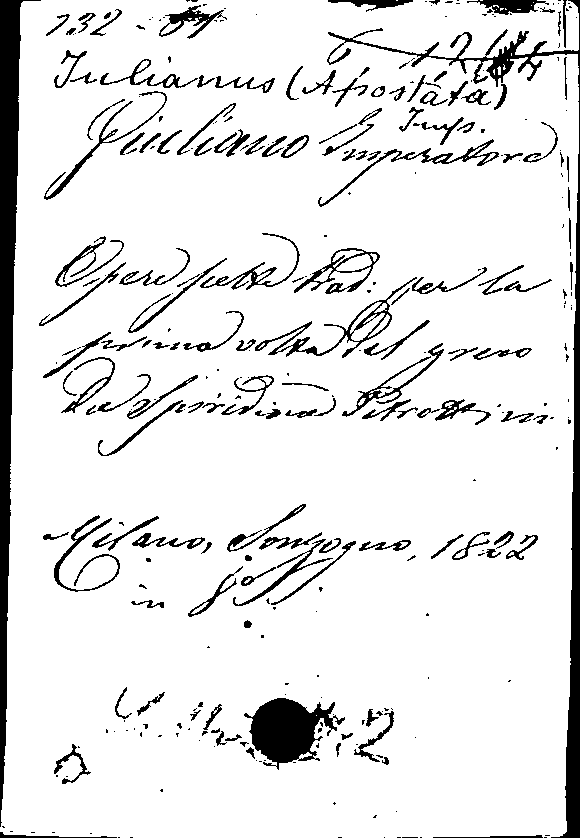 Iulianus (Apostata)
Imp.
Giuliano Imperatore
Opere scelte trad: per la
prima volta dal greco
da Spiridione Petrettini
Milano, Sonzogno, 1822
in 8º